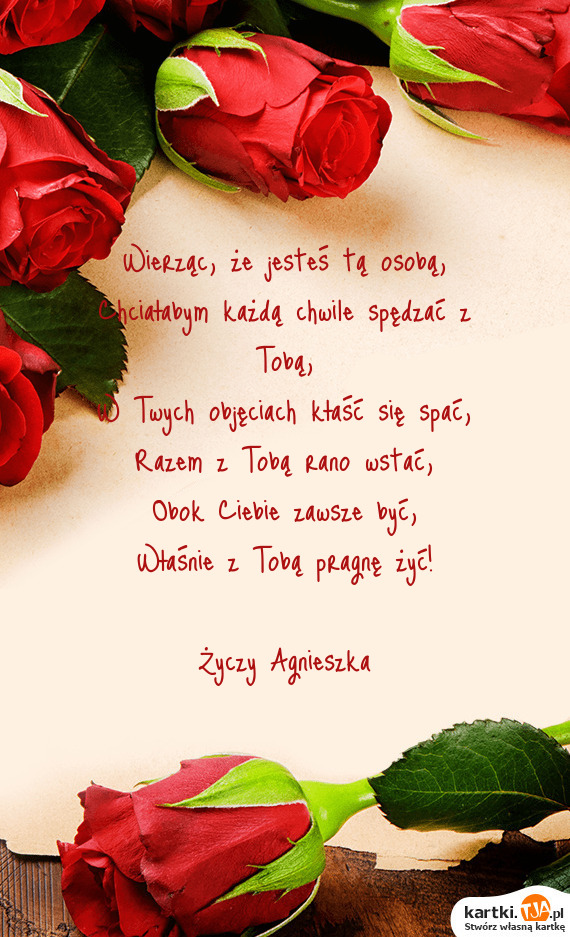 Wierząc, że jesteś tą osobą,
Chciałabym każdą chwile spędzać z
Tobą,
W Twych objęciach kłaść się spać,
Razem z Tobą rano wstać,
Obok Ciebie zawsze być,
Właśnie z Tobą pragnę żyć!
Życzy Agnieszka
kartki.TJA.pl
Stwórz własną kartkę